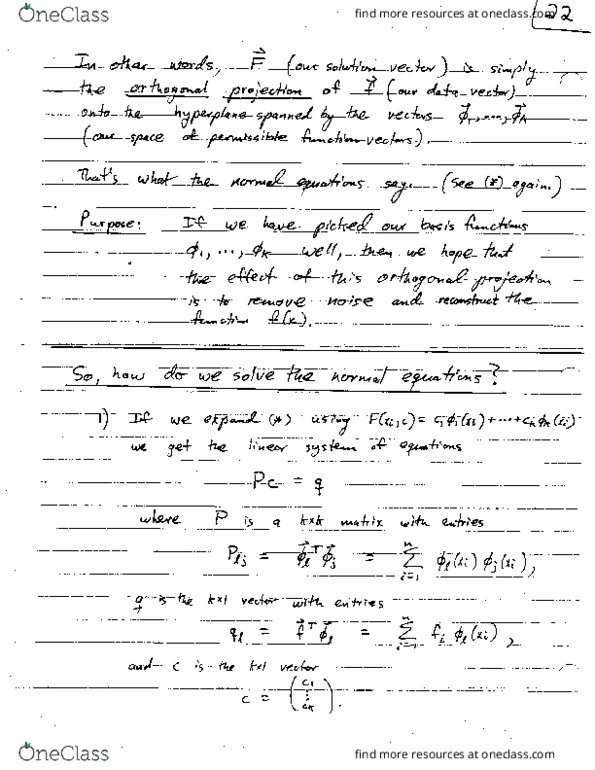 OneClass
find more resources at oneclass.com
22
In other words, F⃗ (our solution vector) is simply
the orthogonal projection of f⃗ (our data vector)
onto the hyperplane spanned by the vectors φ⃗₁,...,φ⃗ₖ
(our space of permissible function vectors).
That's what the normal equations say. (See (*) again.)
Purpose: If we have picked our basis functions
φ₁, ..., φₖ well, then we hope that
the effect of this orthogonal projection
is to remove noise and reconstruct the
function f(x).
So, how do we solve the normal equations?
1) If we expand (*) using F(xᵢ,c) = c₁φ₁(xᵢ)+···+cₖφₖ(xᵢ)
we get the linear system of equations
Pc = q
where P is a k×k matrix with entries
Pₗⱼ = φ⃗ₗᵀφ⃗ⱼ = Σᵢ₌₁ⁿ φₗ(xᵢ) φⱼ(xᵢ),
q is the k×1 vector with entries
qₗ = f⃗ᵀφ⃗ₗ = Σᵢ₌₁ⁿ fᵢ φₗ(xᵢ),
and c is the k×1 vector
c = (c₁ ⋮ cₖ).
OneClass
find more resources at oneclass.com